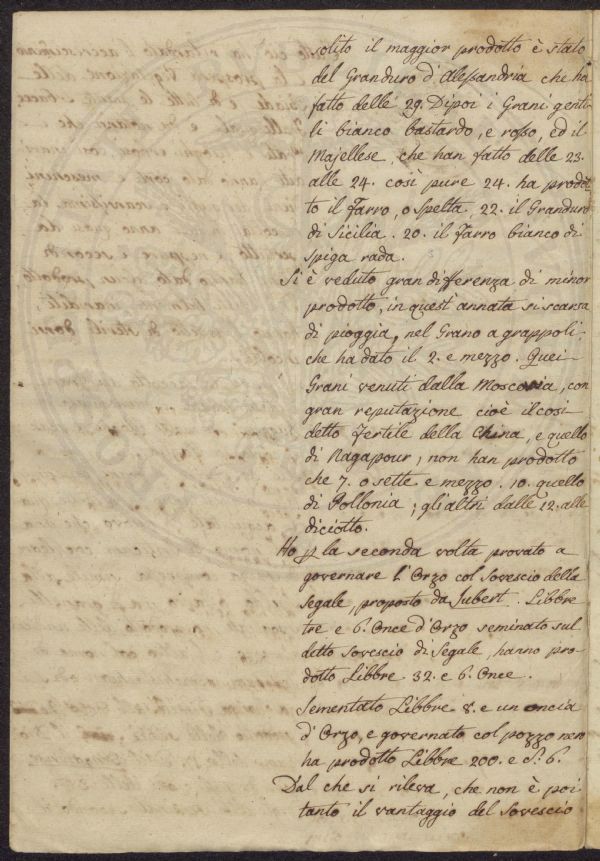 solito il maggior prodotto è stato
del Granduro d'Alessandria che ha
fatto delle 29. Dipoi i Grani genti-
li bianco bastardo, e rosso, ed il
Majellese, che han fatto delle 23.
alle 24. così pure 24. ha prodot-
to il Farro, o Spelta, 22. il Granduro
di Sicilia. 20. il Farro bianco di
Spiga rada.
Si è veduto gran differenza di minor
prodotto, in quest'annata sì scarsa
di pioggia, nel Grano a grappoli
che ha dato il 2. e mezzo. Quei
Grani venuti dalla Moscovia, con
gran reputazione cioè il così
detto Fertile della China, e quello
di Nagapour, non han prodotto
che 7. o sette e mezzo. 10. quello
di Pollonia; gli altri dalle 12. alle
diciotto.
Ho p la seconda volta provato a
governare l'Orzo col Sovescio della
Segale, proposto da Jubert. Libbre
tre e 6. Once d'Orzo seminato sul
detto Sovescio di Segale, hanno pro-
dotto Libbre 32. e 6. Once.
Sementato Libbre 8. e un oncia
d'Orzo, e governato col pozzo nero
ha prodotto Libbre 200. e 6.
Dal che si rileva, che non è poi
tanto il vantaggio del Sovescio